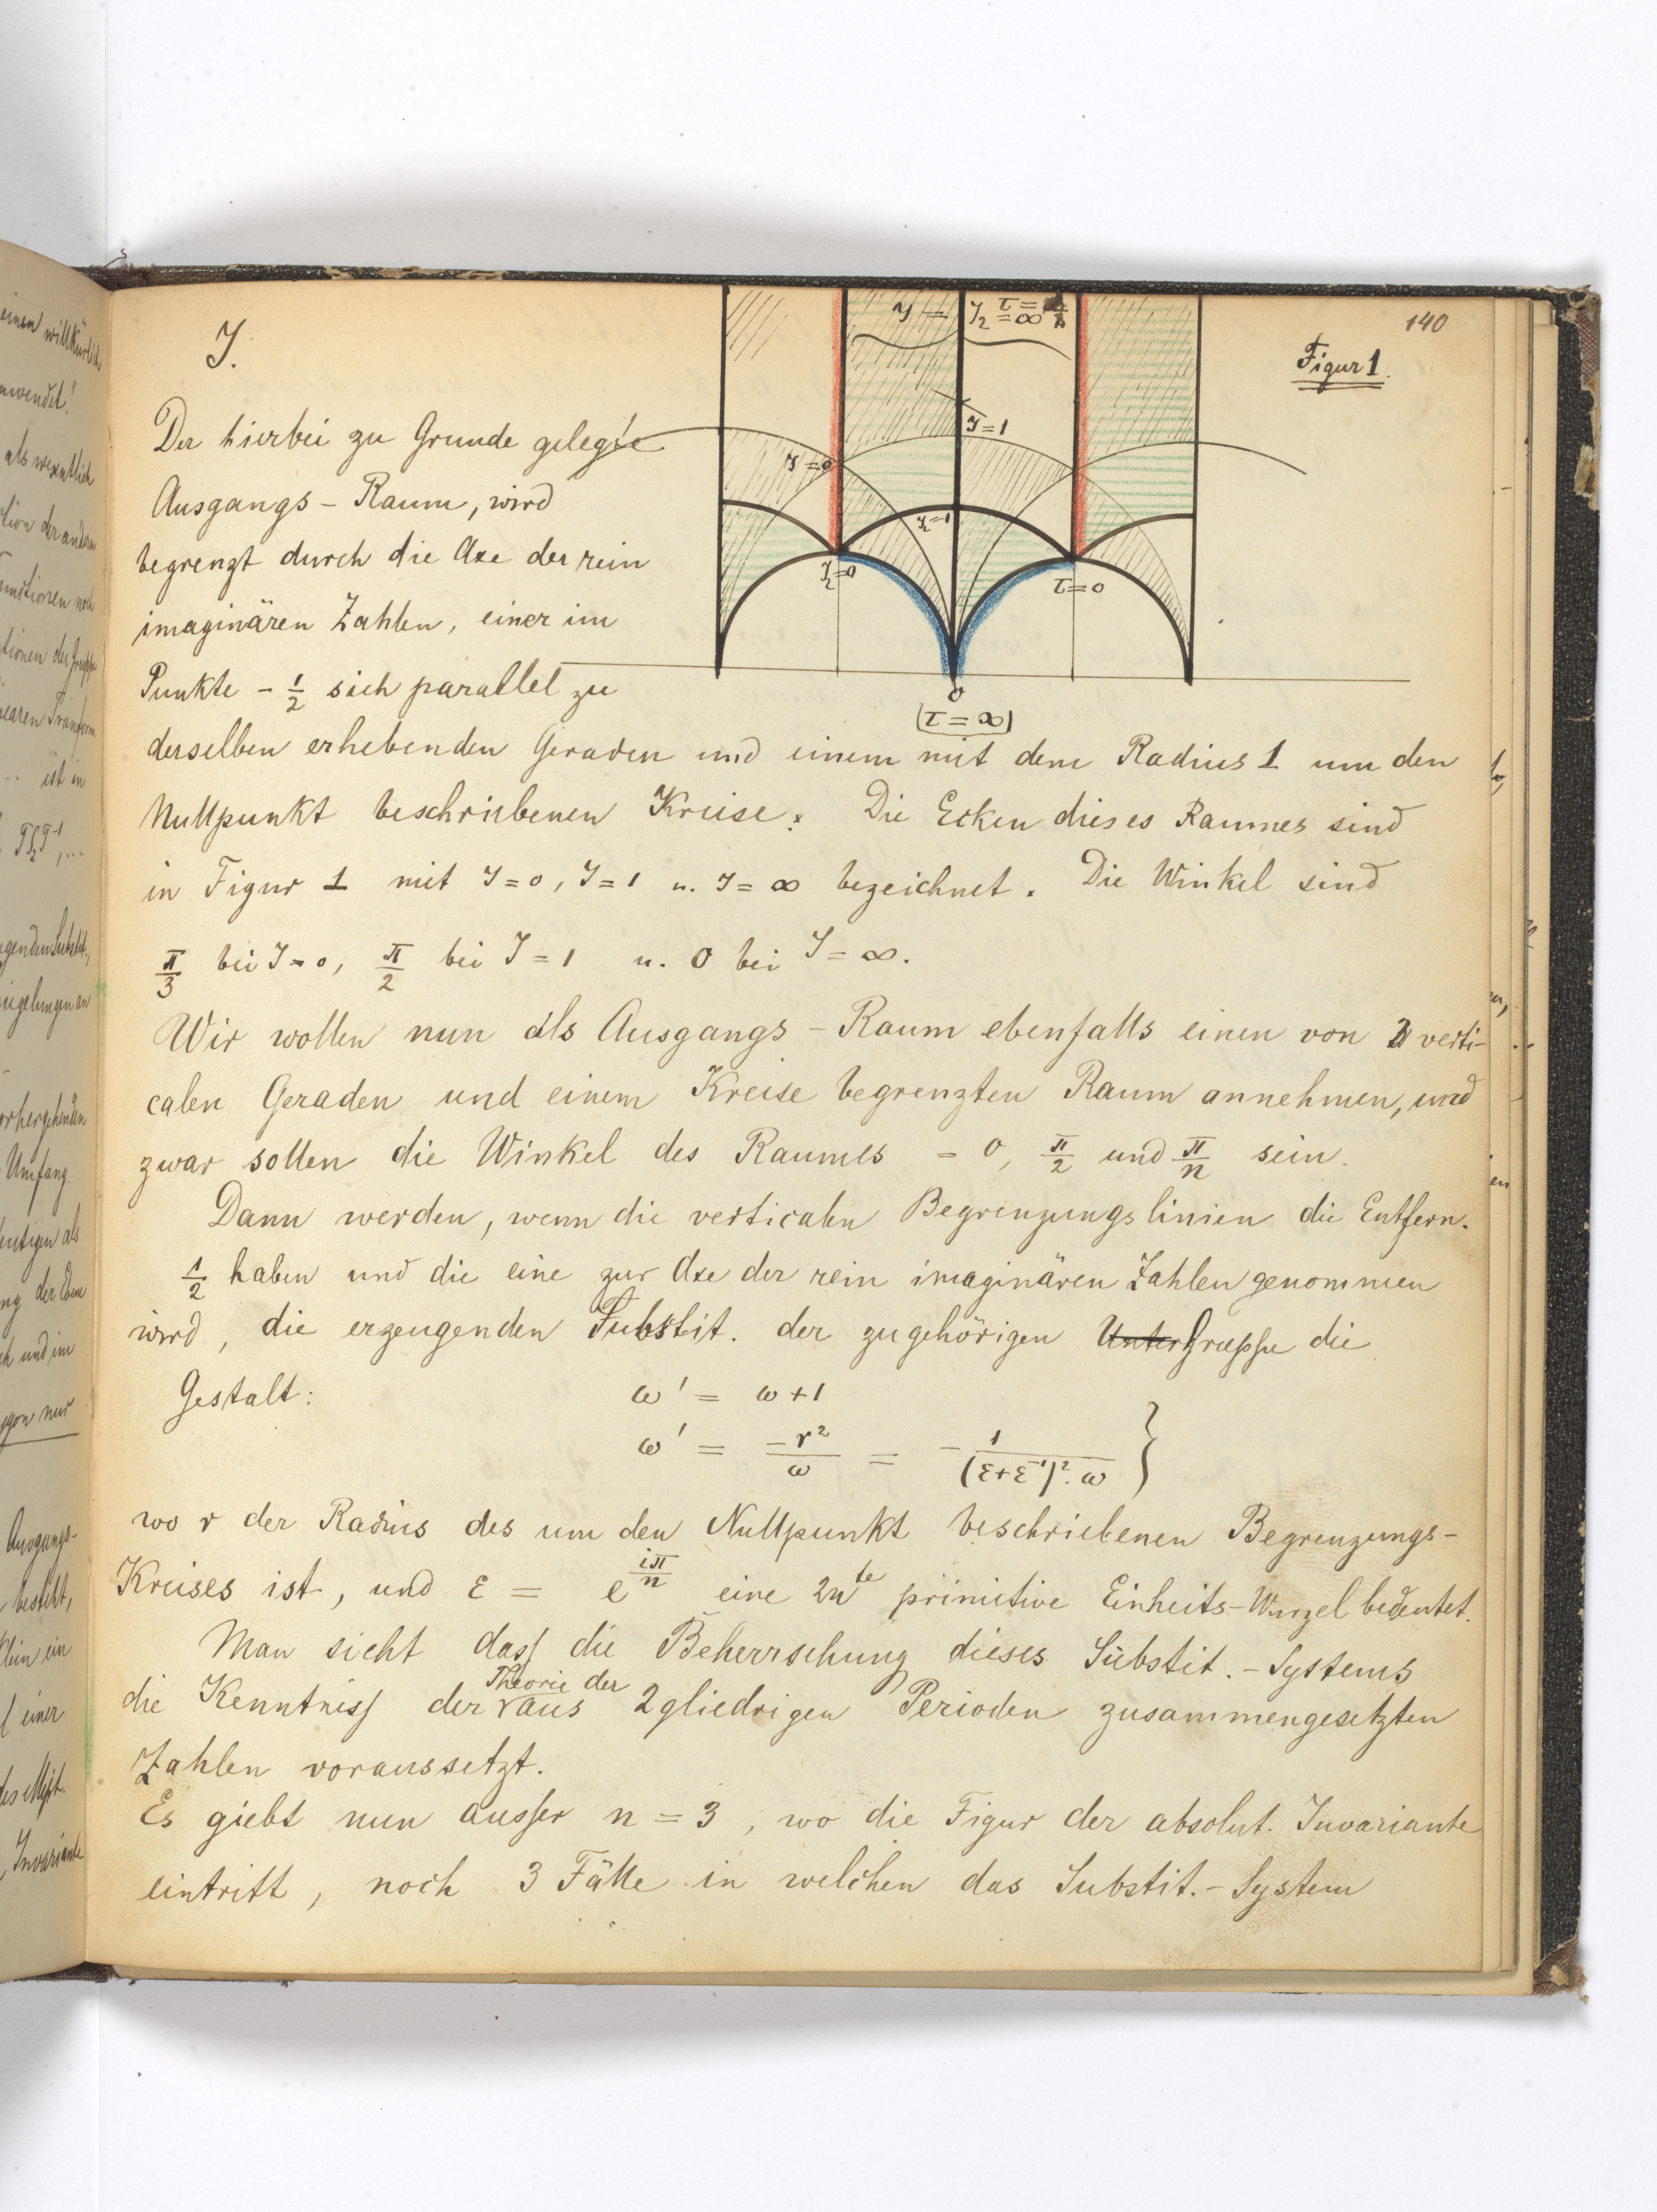 140
Figur 1.
J.
J =
J₂ = ∞
τ =
J=1
J=0
J₂=1
J₂=0
τ=0
0
(τ = ∞)
Der hierbei zu Grunde gelegte
Ausgangs - Raum, wird
begrenzt durch die Axe der rein
imaginären Zahlen, einer im
Punkte - 1/2 sich parallel zu
derselben erhebenden Geraden und einem mit dem Radius 1 um den
Nullpunkt beschriebenen Kreise. Die Ecken dieses Raumes sind
in Figur 1 mit J=0, J=1 u. J=∞ bezeichnet. Die Winkel sind
π/3 bei J=0, π/2 bei J=1 u. 0 bei J=∞.
Wir wollen nun als Ausgangs - Raum ebenfalls einen von 2 verti-
calen Geraden und einem Kreise begrenzten Raum annehmen, und
zwar sollen die Winkel des Raumes = 0, π/2 und π/n sein.
Dann werden, wenn die verticalen Begrenzungslinien die Entfern.
1/2 haben und die eine zur Axe der rein imaginären Zahlen genommen
wird, die erzeugenden Substit. der zugehörigen UnterGruppe die
Gestalt: ω' = ω+1
ω' = -r²/ω = - 1/((ε+ε⁻¹)².ω) }
wo r der Radius des um den Nullpunkt beschriebenen Begrenzungs-
Kreises ist, und ε = e^(iπ/n) eine 2nte primitive Einheits-Wurzel bedeutet.
Man sieht dass die Beherrschung dieses Substit.-Systems
die Kenntniss der Theorie der aus 2gliedrigen Perioden zusammengesetzten
Zahlen voraussetzt.
Es giebt nun ausser n = 3, wo die Figur der absolut. Invariante
eintritt, noch 3 Fälle in welchen das Substit.-System
einen
willkürlich
als wesentlich
ist in
Umfang
Ausgangs-
besteht,
einer
Invariante